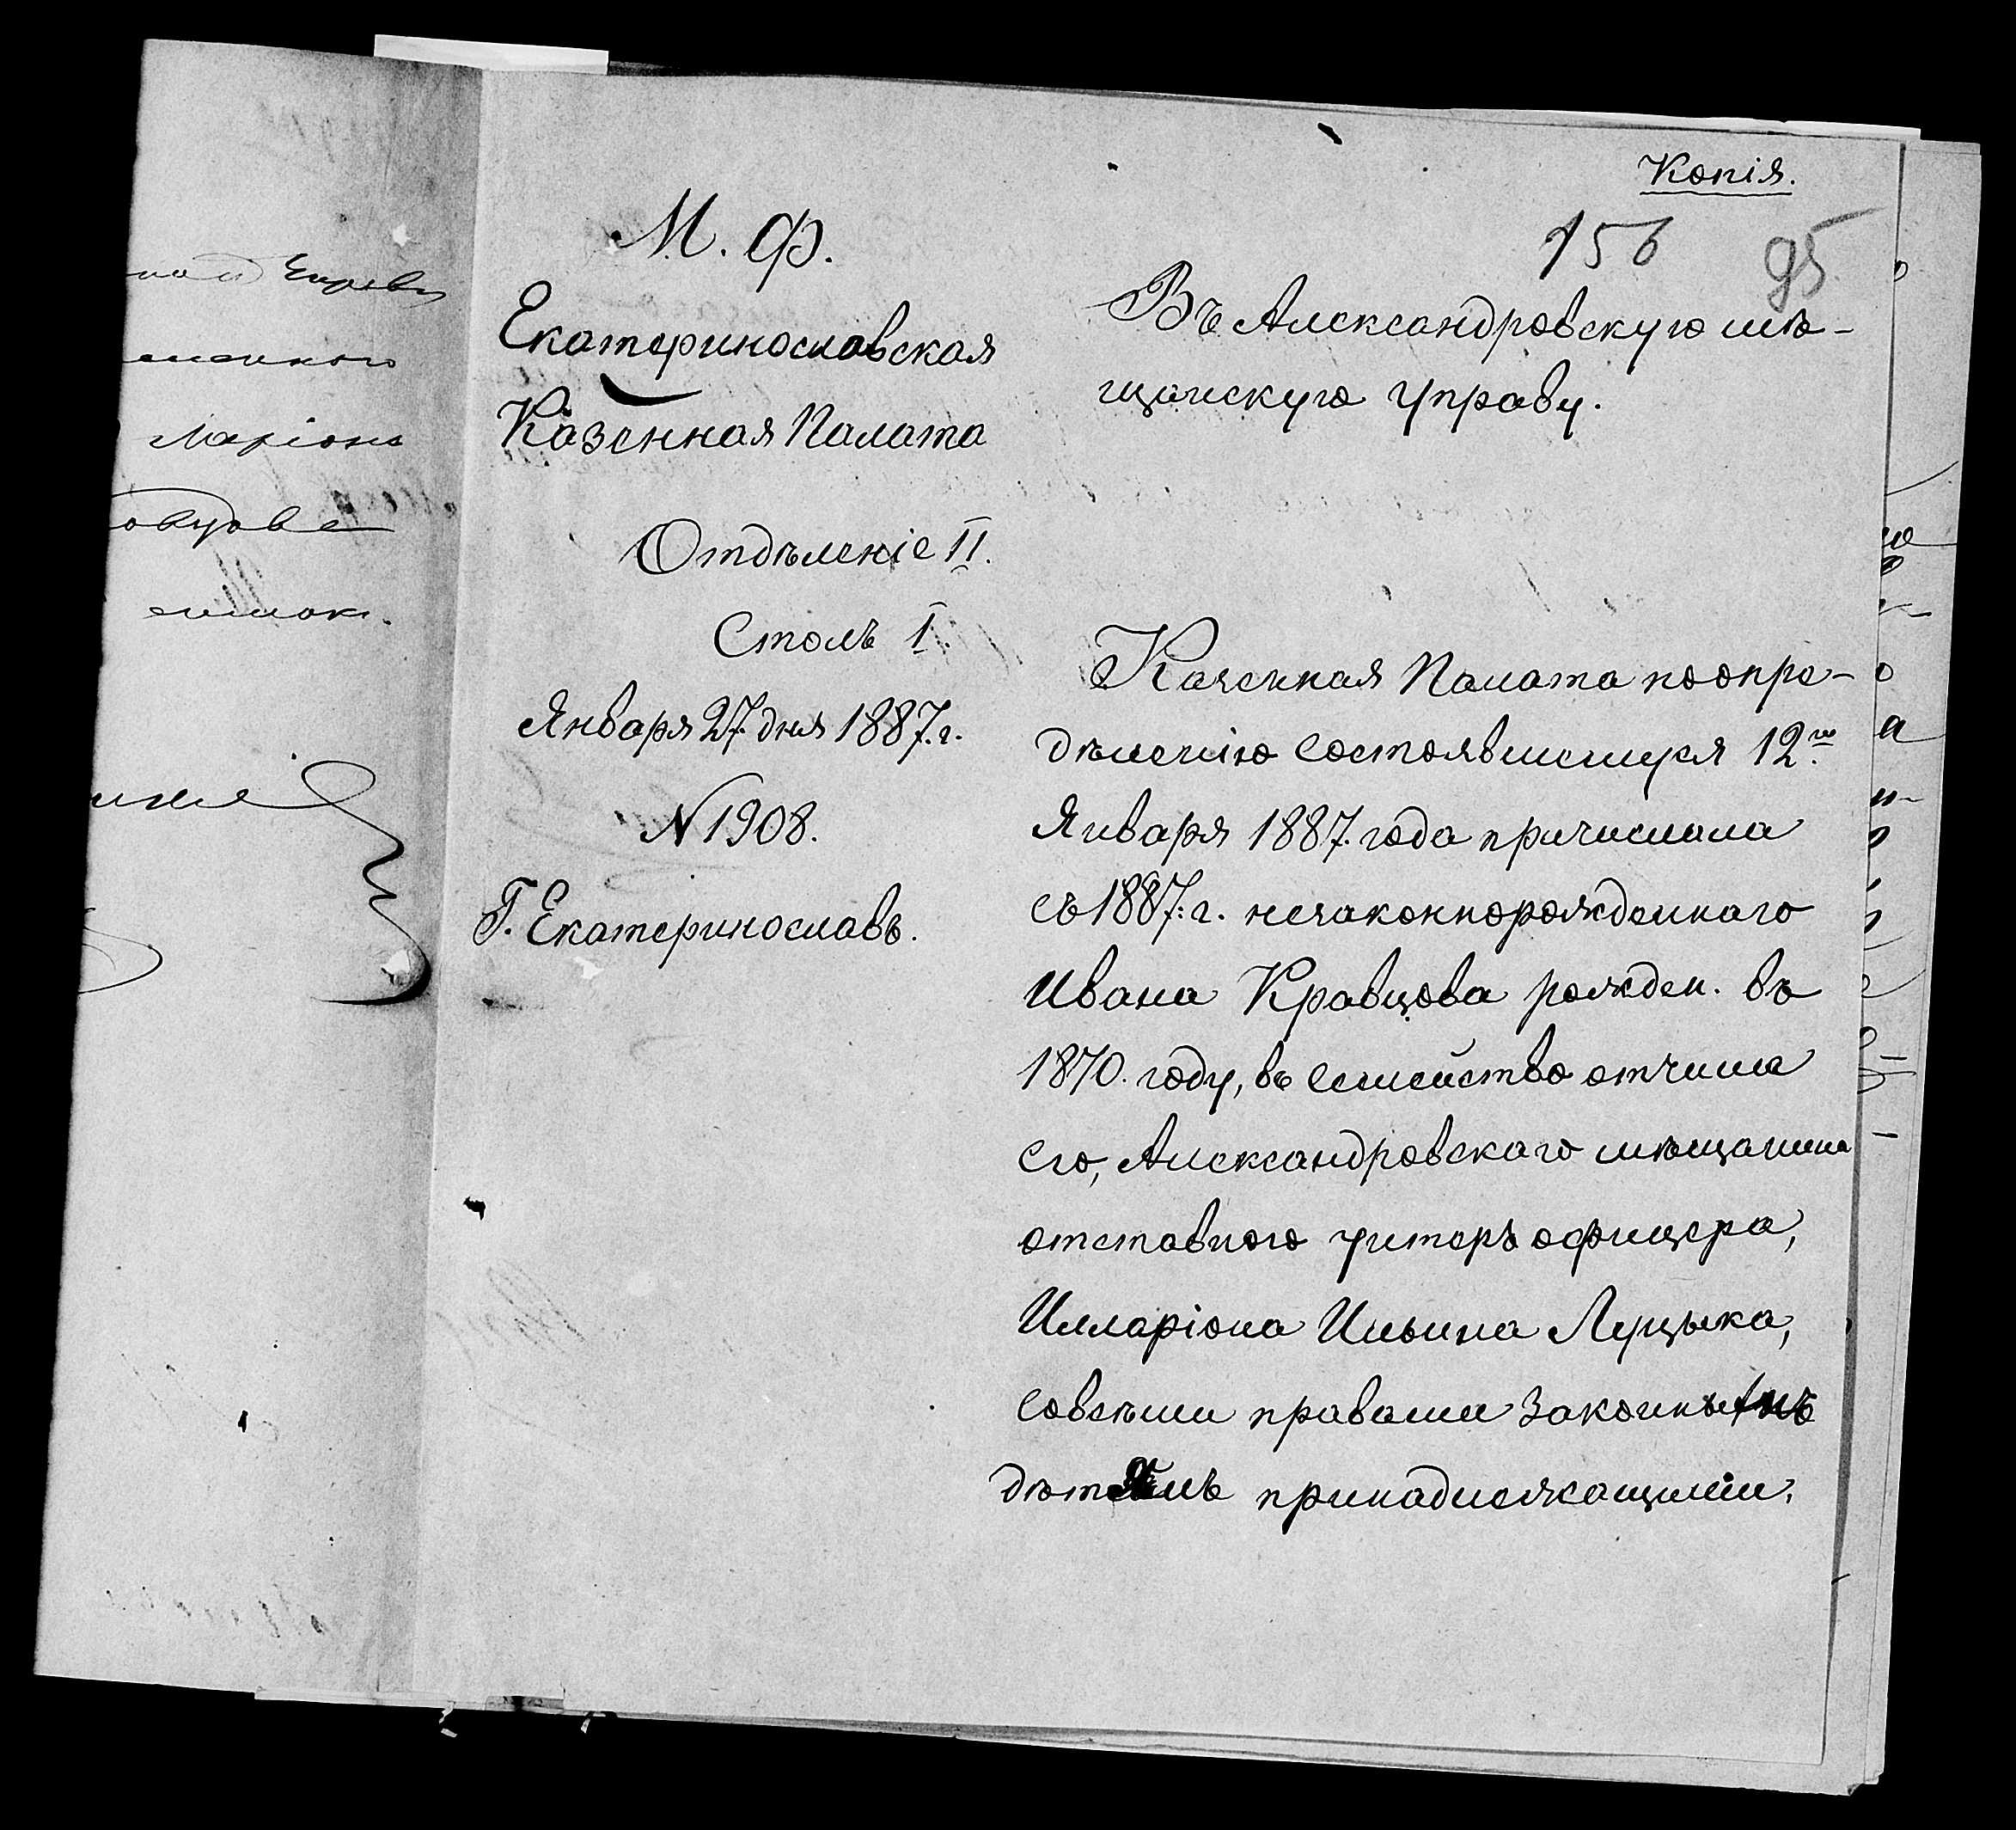 Копія.
156
95
М. Ф.
Екатеринославская
Казенная Палата
Отдѣленіе II.
Столъ I.
Января 27 дня 1887. г.
N 1908.
Г. Екатеринославъ.
Въ Александровскую мѣ-
щанскую управу.
Казенная Палата по опре-
дѣленію состоявшемуся 12го
Января 1887. года причислила
съ 1887. г. незаконнорожденнаго
Ивана Кравцова рожден. въ
1870. году, въ семейство отчима
его, Александровскаго мѣщанина
отставного унтеръ офицера,
Илларіона Ильина Луцыка,
со всѣми правами законнымъ
дѣтямъ принадлежащими.